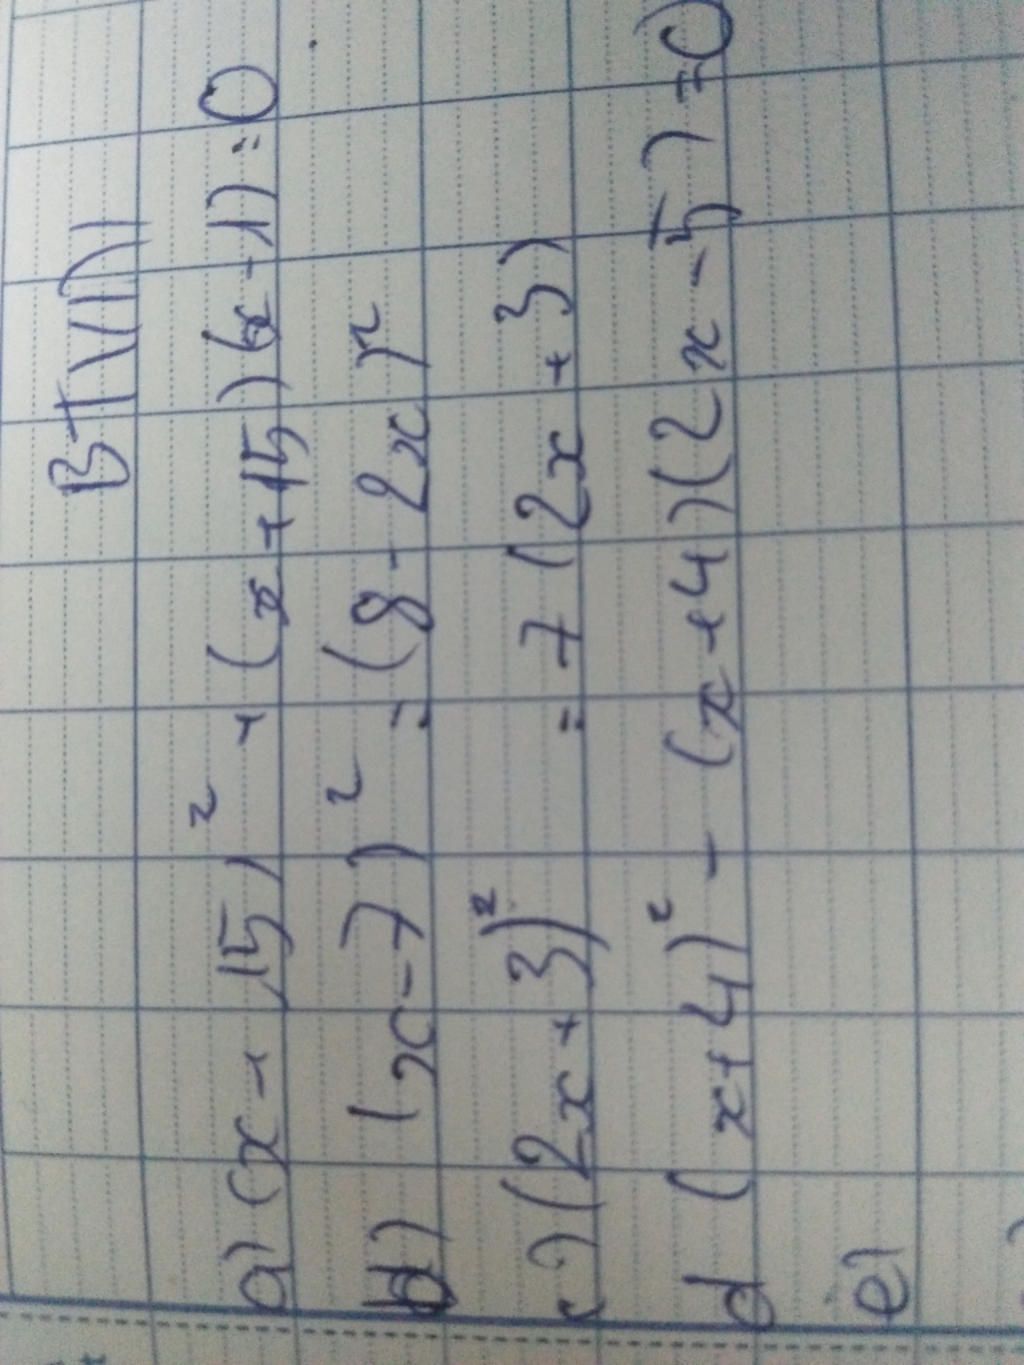 BTVN
a) (x + 15)² + (x + 15)(x - 1) = 0
b) (x - 7)² = (8 - 2x)²
c) (2x + 3)² = 7(2x + 3)
d (x + 4)² - (x + 4)(2x - 5) = 0
e)